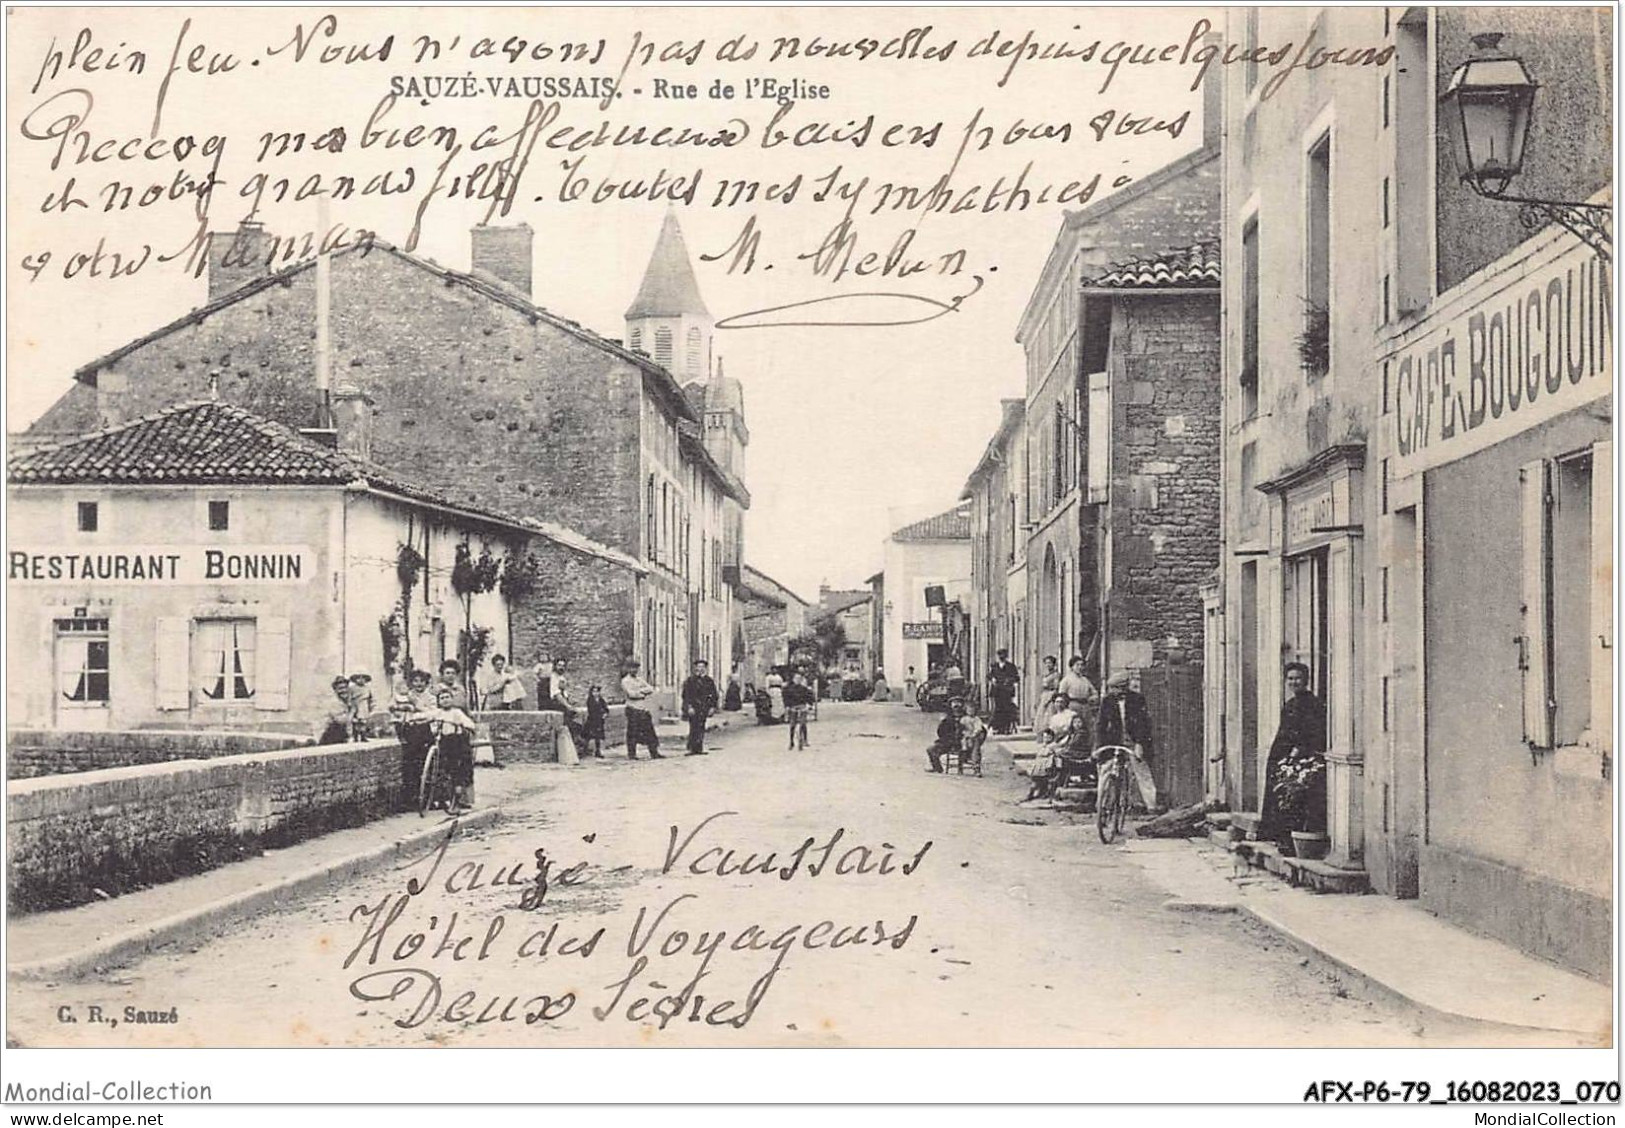 plein feu. Nous n'avons pas de nouvelles depuis quelques jours.
SAUZÉ-VAUSSAIS. - Rue de l'Eglise
Recevez mes bien affectueux baisers pour vous
et notre grande fille. Toutes mes sympathies à
votre Maman. M. Melun.
RESTAURANT BONNIN
CAFÉ BOUGOUIN
Sauzé-Vaussais.
Hôtel des Voyageurs.
Deux Sèvres.
C. R., Sauzé
Mondial-Collection
AFX-P6-79_16082023_070
MondialCollection